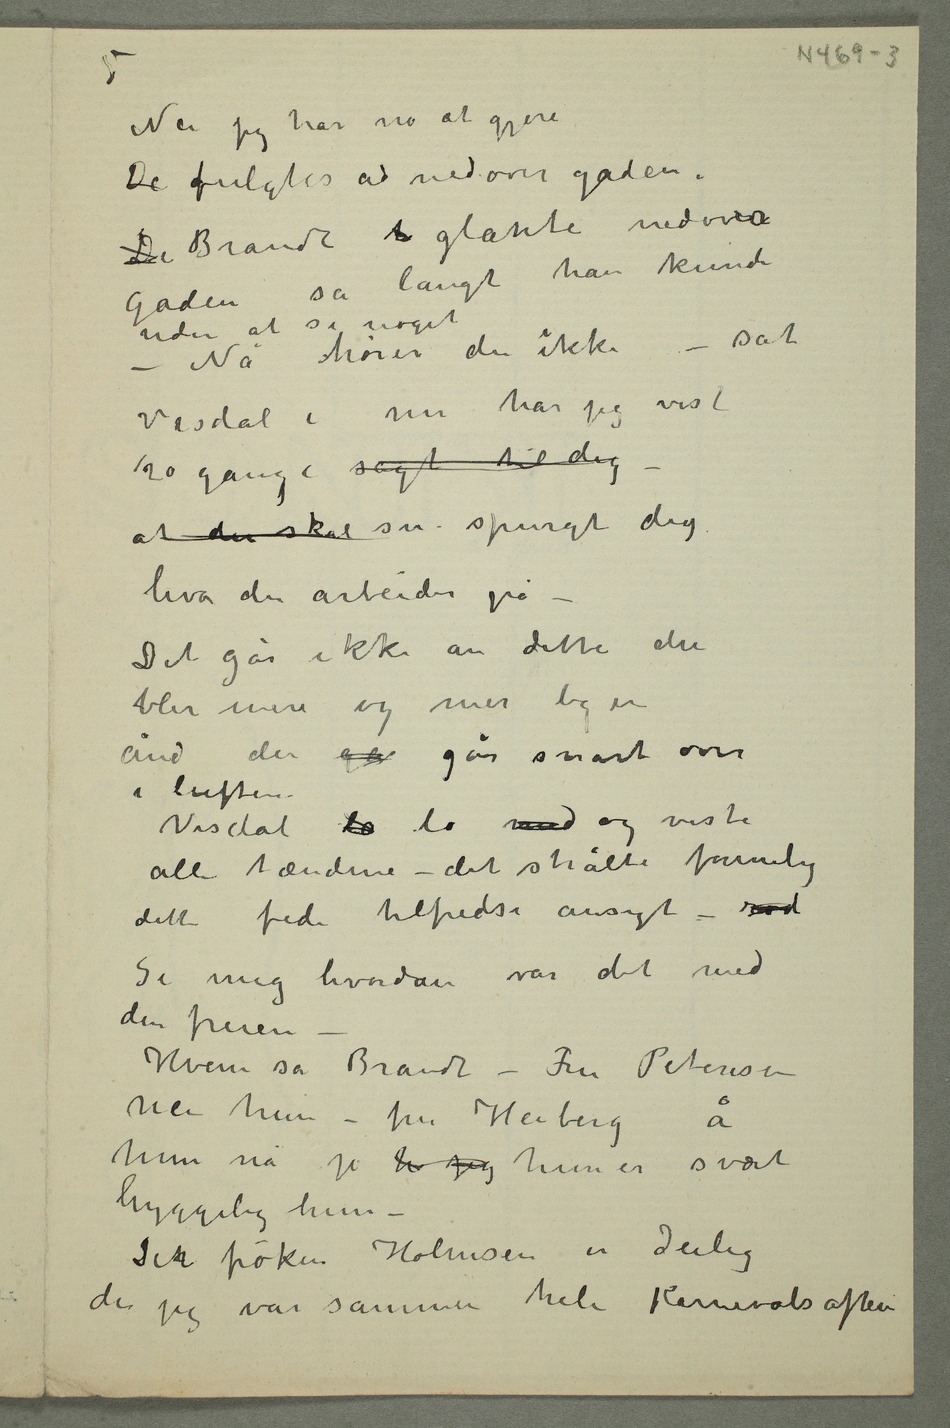 5
N469-3
Nei jeg har no at gjøre
De fulgtes ad nedover gaden.
De Brandt t glante nedover
gaden så langt han kunde
uden at se noget
– Nå hører du ikke – sat
Visdal i nu har jeg vist
20 gange sagt til dig –
at du skal su spurgt dig
hva du arbeider på –
Det går ikke an dette du
bler mere og mer bg en
ånd du gå går snart over
i luften
Visdal lo lo med og viste
alle tænderne – det strålte formelig
dette fede tilfredse ansigt –
Si mig hvordan var det med
den fruen –
Hvem sa Brandt – Fru Petersen
nei hun – fru Heiberg å
hun nå jo h jeg hun er svært
hyggelig hun –
frøken Holmsen er deilig
du jeg var sammen hele Karnevalsaften